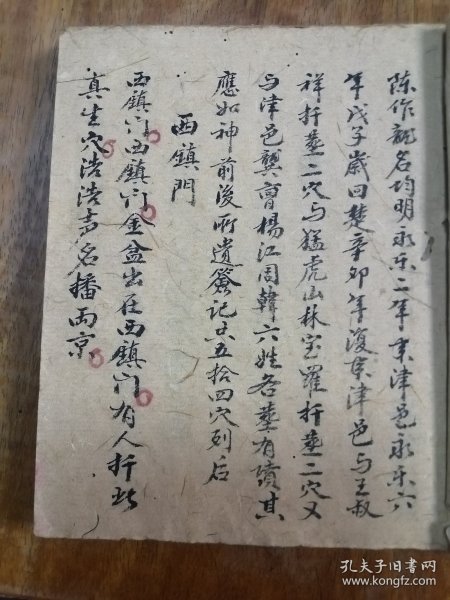 陈作謐名均明永乐二年来津邑永乐六
年戊子歲回楚辛卯年復来津邑与王叔
祥扦塟二穴与猛虎山林宝羅扦塟二穴又
与津邑龔曾楊江周韓六姓各塟有墳其
應如神前後所遺簽記共五拾四穴列后
西鎮門
西鎮门西鎮门金盆出在西鎮门有人扦此
真生穴浩浩声名播両京
孔夫子旧书网
www.kongfz.com